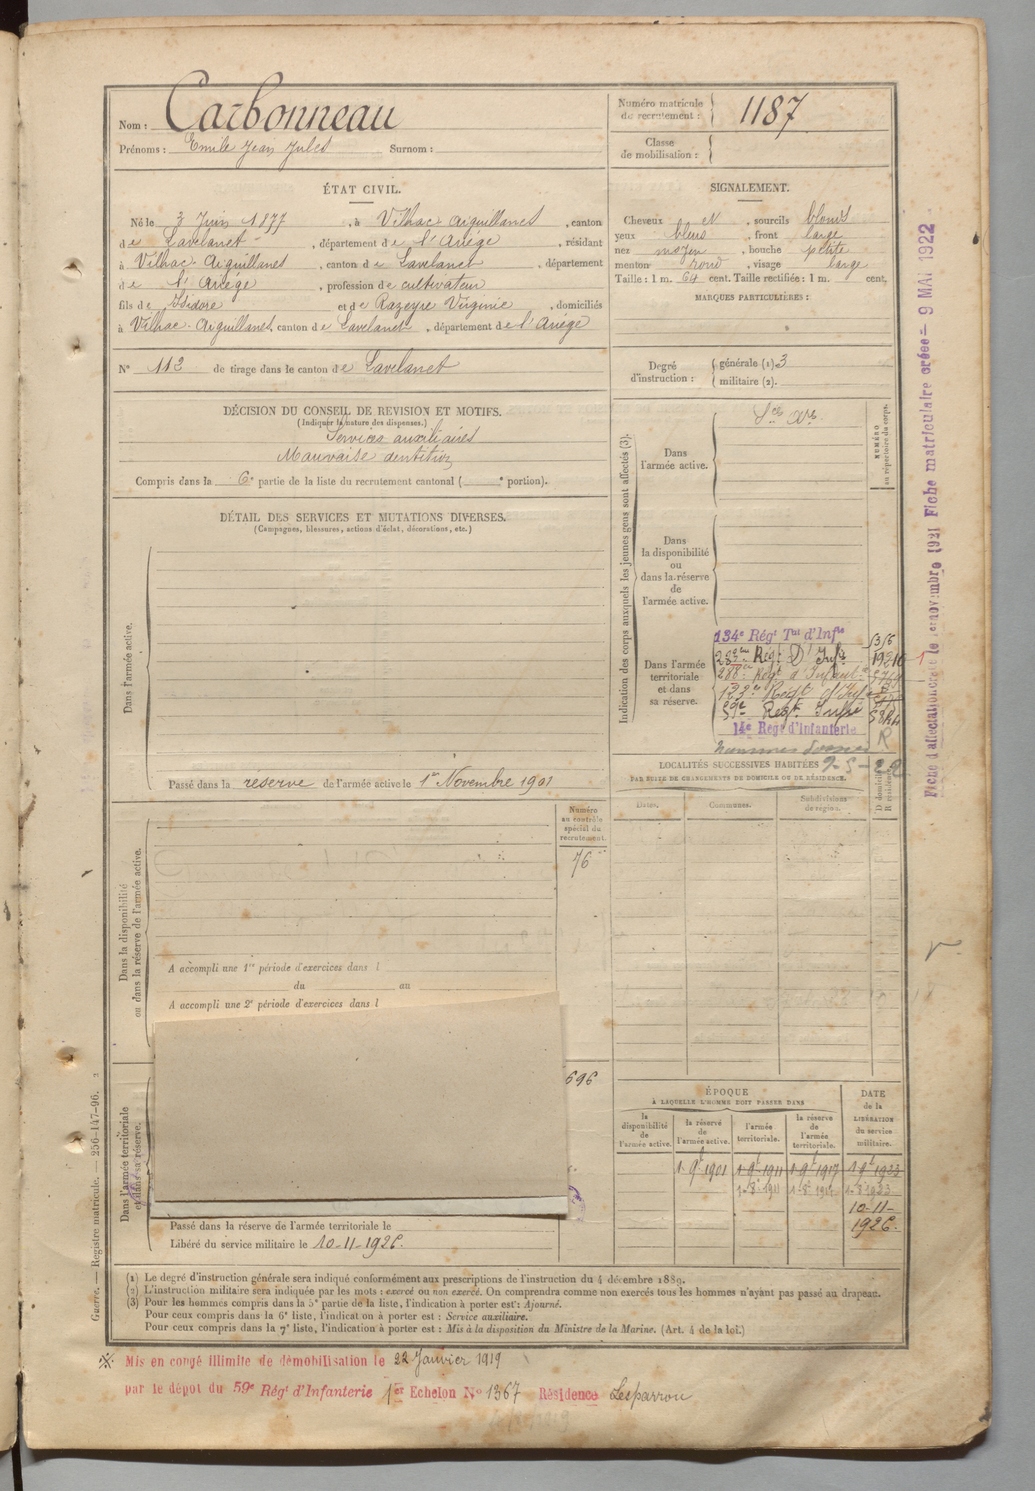 Nom : Carbonneau
Prénoms : Emile Jean Jules Surnom :
Numéro matricule de recrutement : 1187
Classe de mobilisation :
ÉTAT CIVIL.
Né le 3 Juin 1877, à Vilhac-Aiguillanes, canton
de Lavelanet, département de l'Ariège, résidant
à Vilhac-Aiguillanes, canton de Lavelanet, département
de l'Ariège, profession de cultivateur
fils de Isidore et de Razeyre Virginie, domiciliés
à Vilhac-Aiguillanes, canton de Lavelanet, département de l'Ariège
N° 112 de tirage dans le canton de Lavelanet
SIGNALEMENT.
Cheveux et, sourcils blonds
yeux bleus, front large
nez moyen, bouche petite
menton rond, visage large
Taille : 1 m. 64 cent. Taille rectifiée : 1 m. cent.
MARQUES PARTICULIÈRES :
Degré d'instruction : générale (1) 3
militaire (2).
DÉCISION DU CONSEIL DE REVISION ET MOTIFS.
(Indiquer la nature des dispenses.)
Services auxiliaires
Mauvaise dentition
Compris dans la 6e partie de la liste du recrutement cantonal ( e portion).
DÉTAIL DES SERVICES ET MUTATIONS DIVERSES.
(Campagnes, blessures, actions d'éclat, décorations, etc.)
Dans l'armée active.
Passé dans la réserve de l'armée active le 1er Novembre 1901
Indication des corps auxquels les jeunes gens sont affectés (3).
NUMÉRO au répertoire du corps.
Dans l'armée active.
Dans la disponibilité ou dans la réserve de l'armée active.
Dans l'armée territoriale et dans sa réserve.
134e Régt Tal d'Infie
59e Régt Infie
14e Régt d'infanterie
LOCALITÉS SUCCESSIVES HABITÉES
PAR SUITE DE CHANGEMENTS DE DOMICILE OU DE RÉSIDENCE.
Dates.
Communes.
Subdivisions de région.
D domicile R résidence
Dans la disponibilité ou dans la réserve de l'armée active.
Numéro au contrôle spécial du recrutement.
76
A accompli une 1re période d'exercices dans l
du au
A accompli une 2e période d'exercices dans l
696
Dans l'armée territoriale et dans sa réserve.
Passé dans la réserve de l'armée territoriale le
Libéré du service militaire le 10-11-1926.
ÉPOQUE
À LAQUELLE L'HOMME DOIT PASSER DANS
la disponibilité de l'armée active.
la réserve de l'armée active.
l'armée territoriale.
la réserve de l'armée territoriale.
DATE de la LIBÉRATION du service militaire.
1-9t 1901 1-9t 1911 1-9t 1917 1-9t 1923
10-11-
1926.
(1) Le degré d'instruction générale sera indiqué conformément aux prescriptions de l'instruction du 4 décembre 1889.
(2) L'instruction militaire sera indiquée par les mots : exercé ou non exercé. On comprendra comme non exercés tous les hommes n'ayant pas passé au drapeau.
(3) Pour les hommes compris dans la 5e partie de la liste, l'indication à porter est : Ajourné.
Pour ceux compris dans la 6e liste, l'indication à porter est : Service auxiliaire.
Pour ceux compris dans la 7e liste, l'indication à porter est : Mis à la disposition du Ministre de la Marine. (Art. 4 de la loi.)
Guerre. — Registre matricule. — 256-147-96. 2
Mis en congé illimité de démobilisation le 22 Janvier 1919
par le dépôt du 59e Régt d'Infanterie 1er Echelon N° 1367 Résidence Lesparrou
Fiche d'affectation créée le novembre 1921 Fiche matriculaire créée = 9 MAI 1922